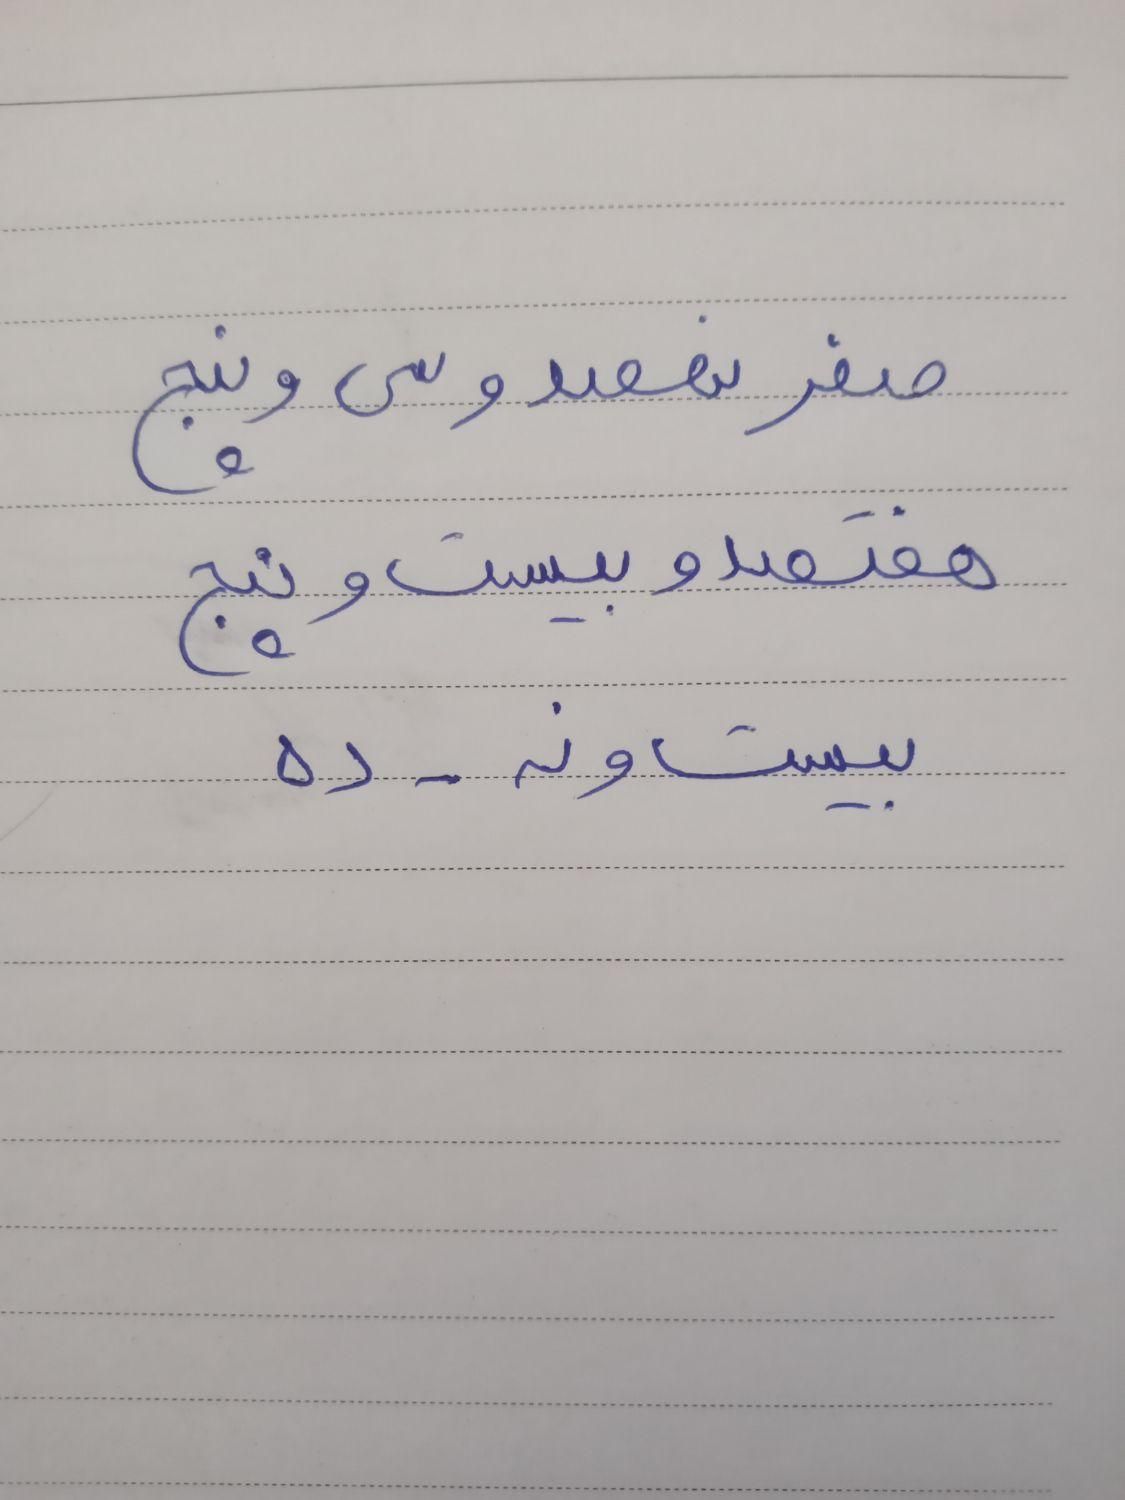 صفر نهصد و سی و پنج
هفتصد و بیست و پنج
بیست و نه - ده